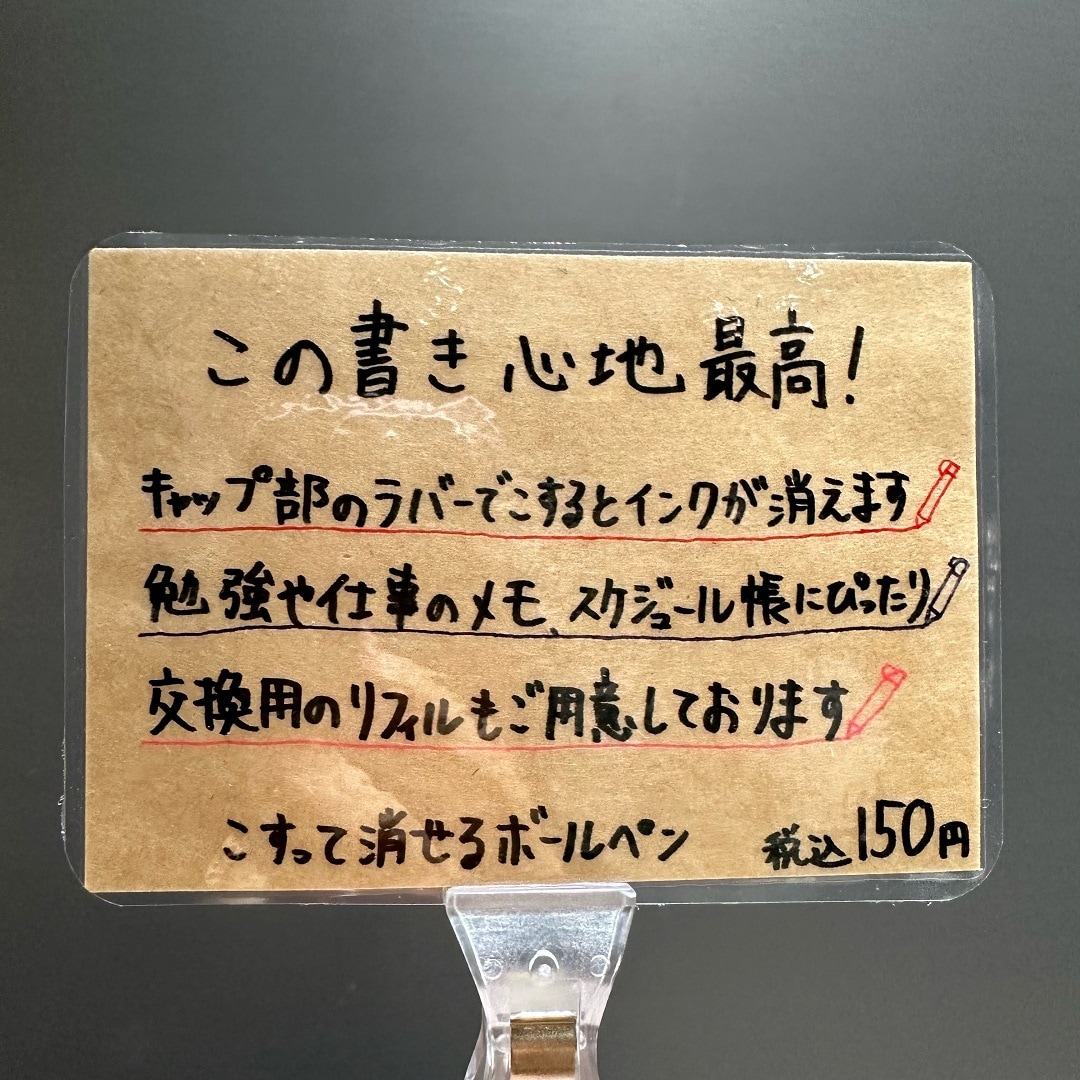 この書き心地最高!
キャップ部のラバーでこするとインクが消えます
勉強や仕事のメモ、スケジュール帳にぴったり
交換用のリフィルもご用意しております
こすって消せるボールペン 税込150円